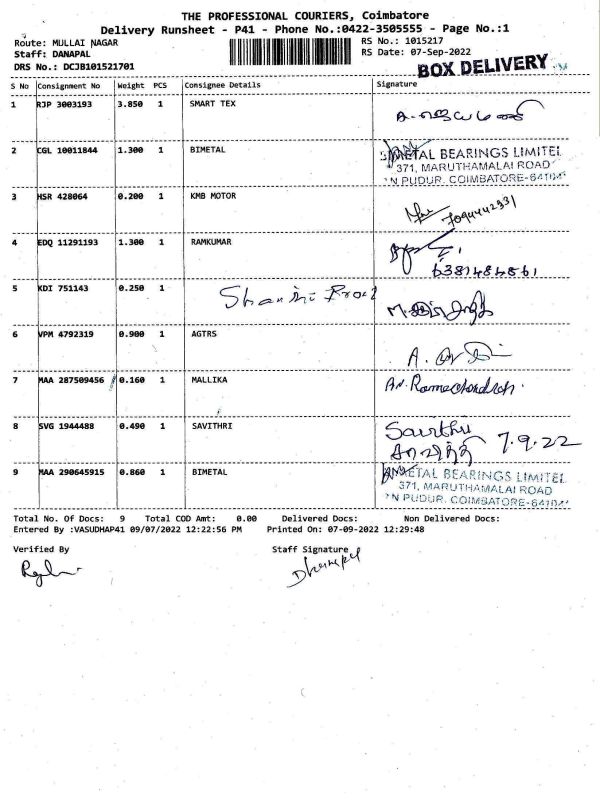 THE PROFESSIONAL COURIERS, Coimbatore
Delivery Runsheet - P41 - Phone No.:0422-3505555 - Page No.:1
Route: MULLAI NAGAR
RS No.: 1015217
Staff: DANAPAL
RS Date: 07-Sep-2022
DRS No.: DCJB101521701
BOX DELIVERY
S No Consignment No Weight PCS Consignee Details Signature
1 RJP 3003193 3.850 1 SMART TEX
2 CGL 10011844 1.300 1 BIMETAL
BIMETAL BEARINGS LIMITED
371, MARUTHAMALAI ROAD
N PUDUR, COIMBATORE-641041
3 HSR 428064 0.200 1 KMB MOTOR
7094442931
4 EDQ 11291193 1.300 1 RAMKUMAR
6381484861
5 KDI 751143 0.250 1
6 VPM 4792319 0.900 1 AGTRS
7 MAA 287509456 0.160 1 MALLIKA
AN. Ramachandran.
8 SVG 1944488 0.490 1 SAVITHRI
Savithri
சாவித்ரி 7.9.22
9 MAA 290645915 0.860 1 BIMETAL
BIMETAL BEARINGS LIMITED
371, MARUTHAMALAI ROAD
N PUDUR, COIMBATORE-641041
Total No. Of Docs: 9 Total COD Amt: 0.00 Delivered Docs: Non Delivered Docs:
Entered By :VASUDHAP41 09/07/2022 12:22:56 PM Printed On: 07-09-2022 12:29:48
Verified By Staff Signature